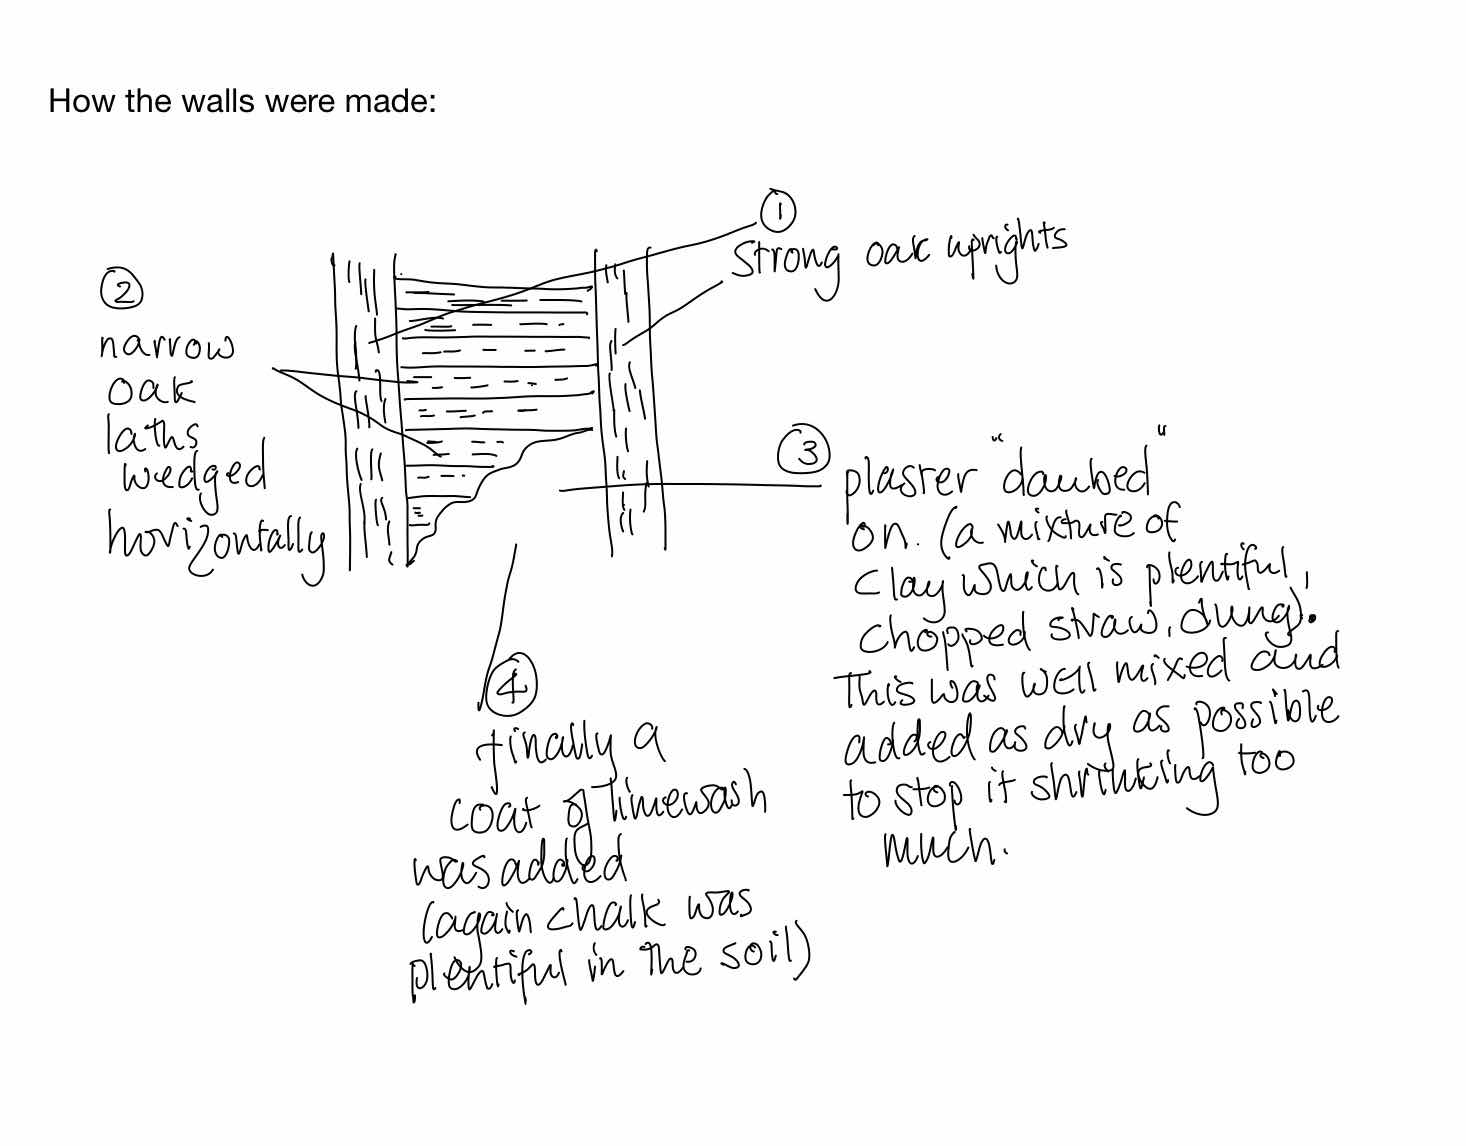 How the walls were made:
①
Strong oak uprights
②
narrow
oak
laths
wedged
horizontally
③
plaster "daubed"
on. (a mixture of
clay which is plentiful,
chopped straw, dung).
This was well mixed and
added as dry as possible
to stop it shrinking too
much.
④
finally a
coat of limewash
was added
(again chalk was
plentiful in the soil)